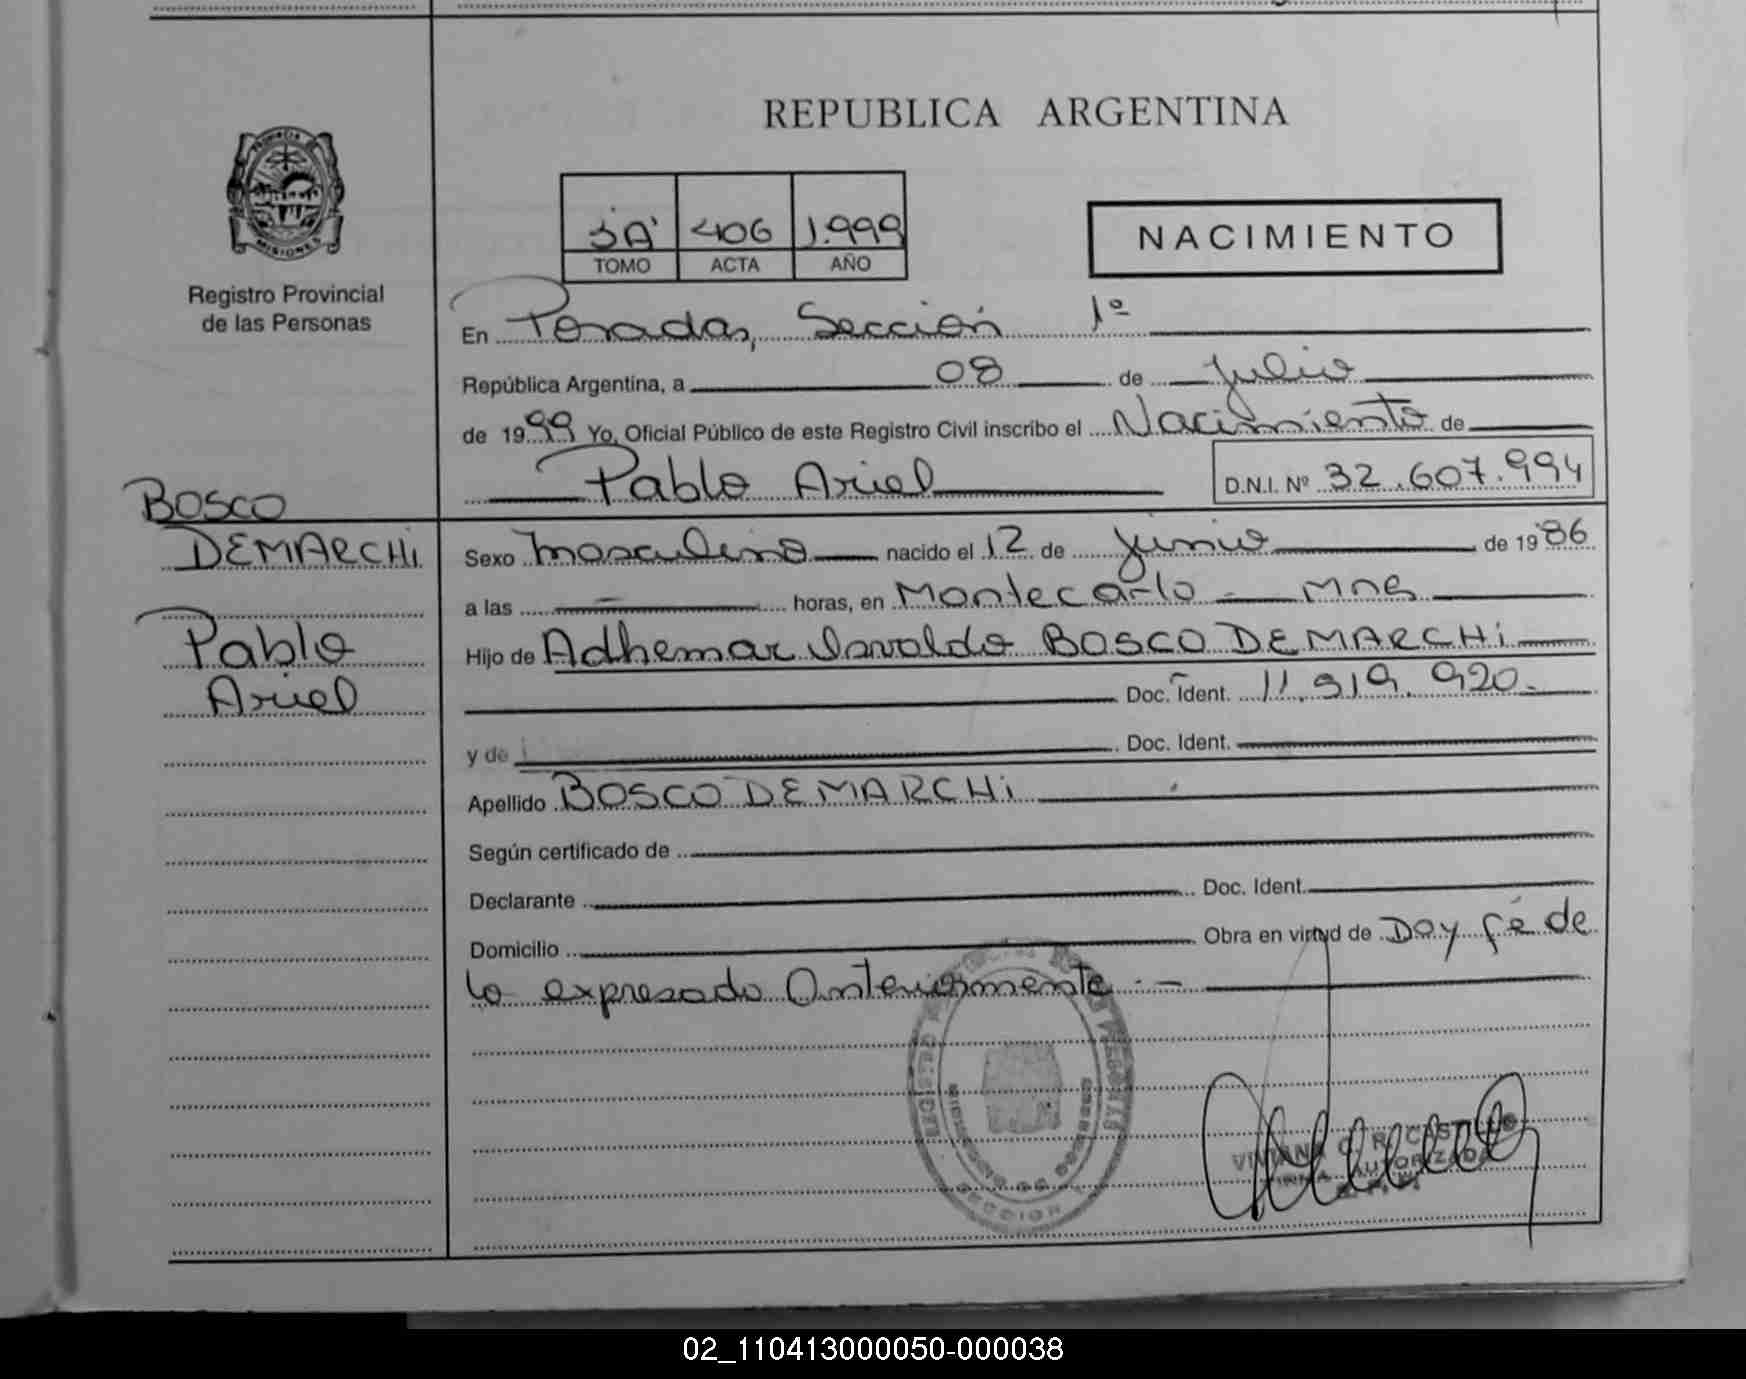 REPUBLICA ARGENTINA
PROVINCIA DE
MISIONES
Registro Provincial
de las Personas
3A 406 1.999
TOMO ACTA AÑO
NACIMIENTO
En Posadas, Sección 1º
República Argentina, a 08 de Julio
de 1999 Yo, Oficial Público de este Registro Civil inscribo el Nacimiento de
Pablo Ariel D.N.I. Nº 32.607.994
BOSCO
DEMARCHi
Pablo
Ariel
Sexo masculino nacido el 12 de junio de 1986
a las - horas, en Montecarlo - Mnes
Hijo de Adhemar Osvaldo BOSCO DEMARCHi
Doc. Ident. 11.919.920.-
y de Doc. Ident.
Apellido BOSCO DEMARCHi
Según certificado de
Declarante Doc. Ident.
Domicilio Obra en virtud de Doy fé de
lo expresado Anteriormente.-
SECCION
AUTORIZADA
02_110413000050-000038